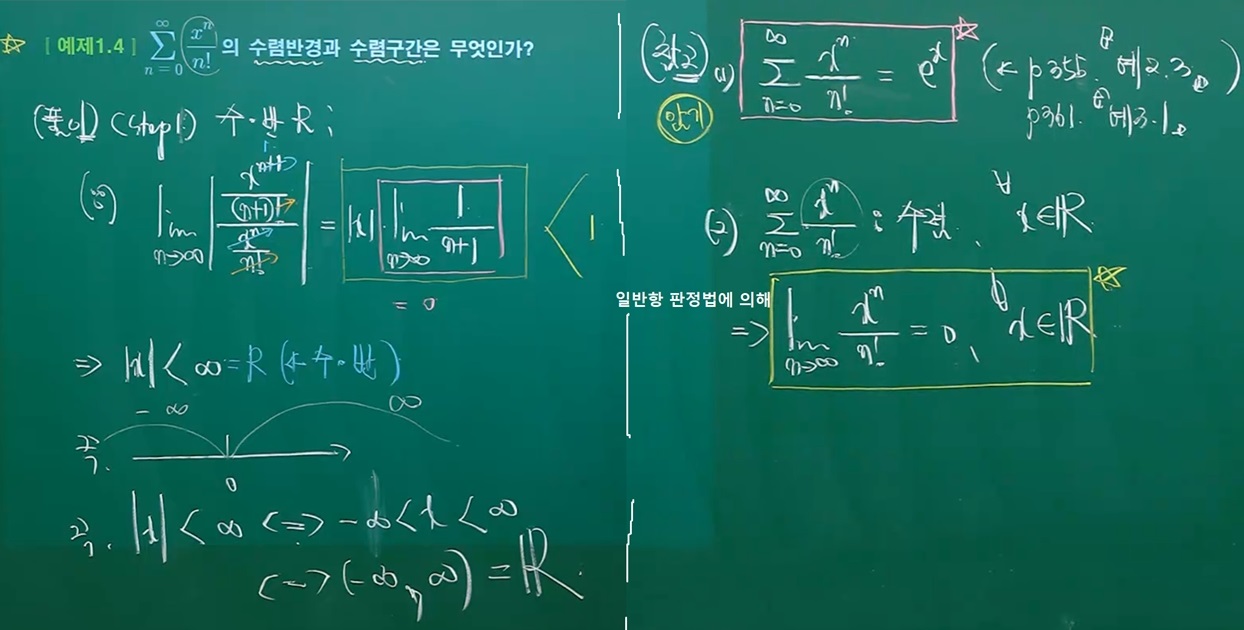 ☆ [ 예제1.4 ] ∑_{n=0}^{∞} x^n/n! 의 수렴반경과 수렴구간은 무엇인가?
(풀이) (step1.) 수·반 R ;
(∵) lim_{n→∞} | (x^{n+1}/(n+1)!) / (x^n/n!) | = |x| · lim_{n→∞} 1/(n+1) < 1
= 0
⇒ |x| < ∞ = R (← 수·반)
- ∞ ∞
0
|x| < ∞ <=> -∞ < x < ∞
<=> (-∞, ∞) = ℝ.
(참고) (1) ∑_{n=0}^{∞} x^n/n! = e^x ☆ (← p355. 예2.3.)
암기 p361. 예3.1.
(2) ∑_{n=0}^{∞} x^n/n! : 수렴, ∀x∈ℝ.
일반항 판정법에 의해
=> lim_{n→∞} x^n/n! = 0, ∀x∈ℝ ☆